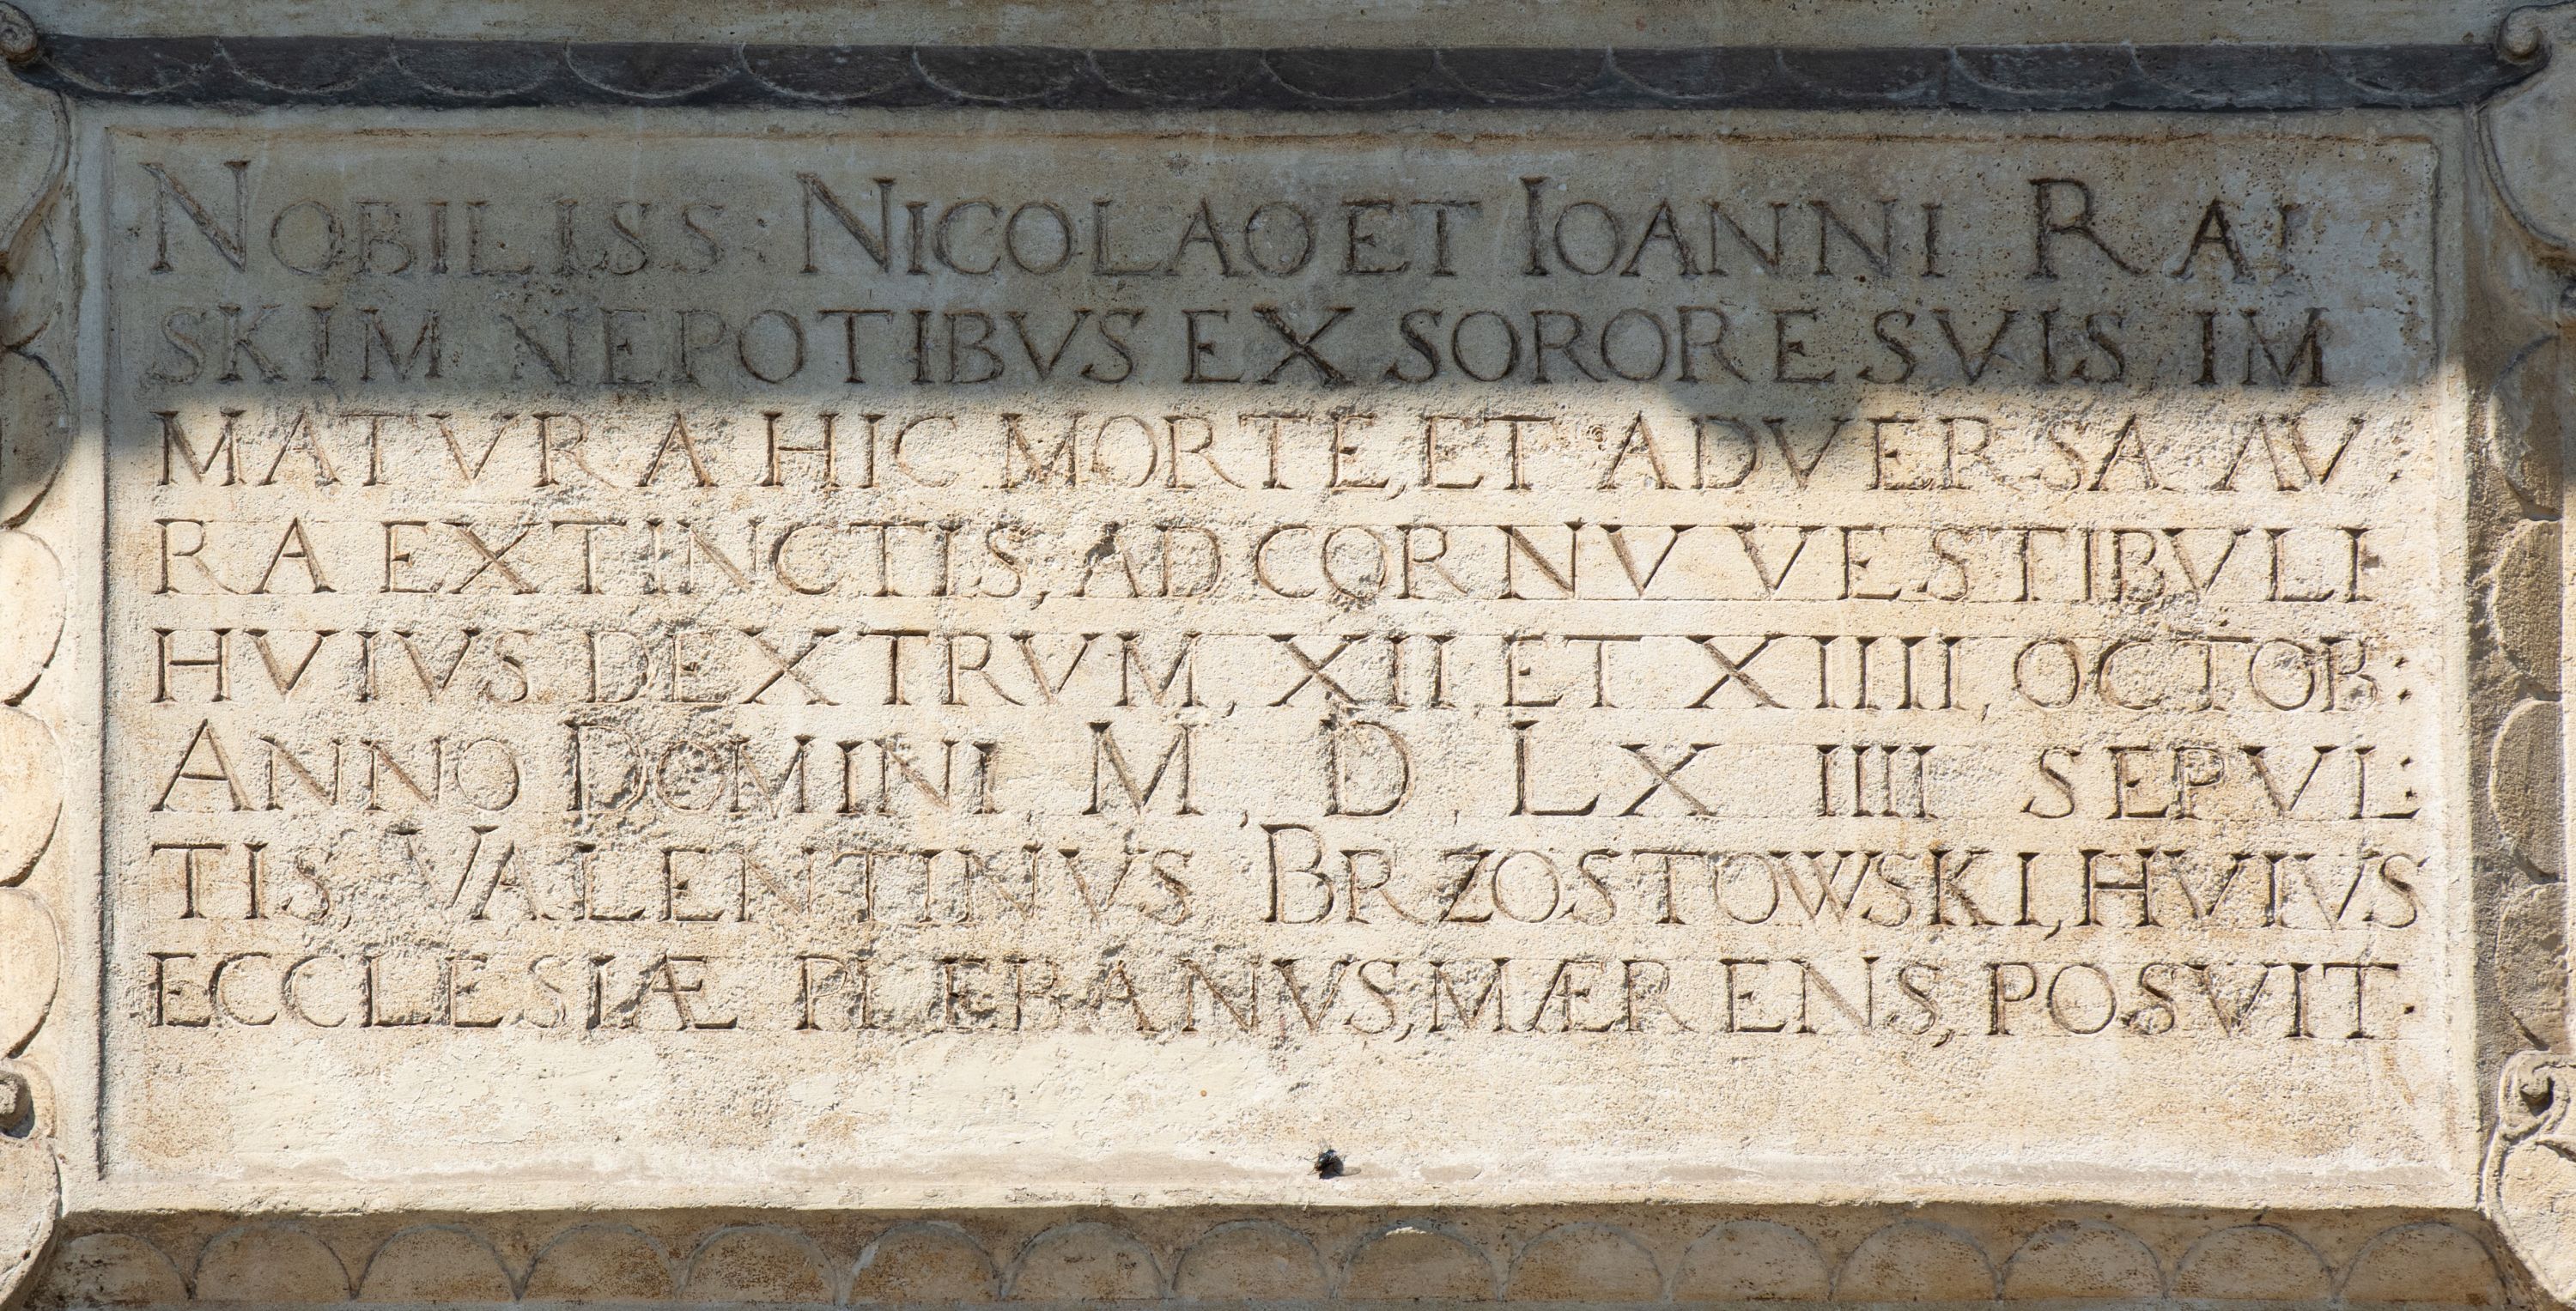 NOBILISS: NICOLAO ET IOANNI RAI
SKIM NEPOTIBVS EX SORORE SVIS IM
MATVRA HIC MORTE, ET ADVERSA AV:
RA EXTINCTIS, AD CORNV VESTIBVLI
HVIVS DEXTRVM, XII, ET XIIII, OCTOB:
ANNO DOMINI M, D, LX IIII SEPVL:
TIS, VALENTINVS BRZOSTOWSKI, HVIVS
ECCLESIÆ PLEBANVS, MÆRENS, POSVIT: